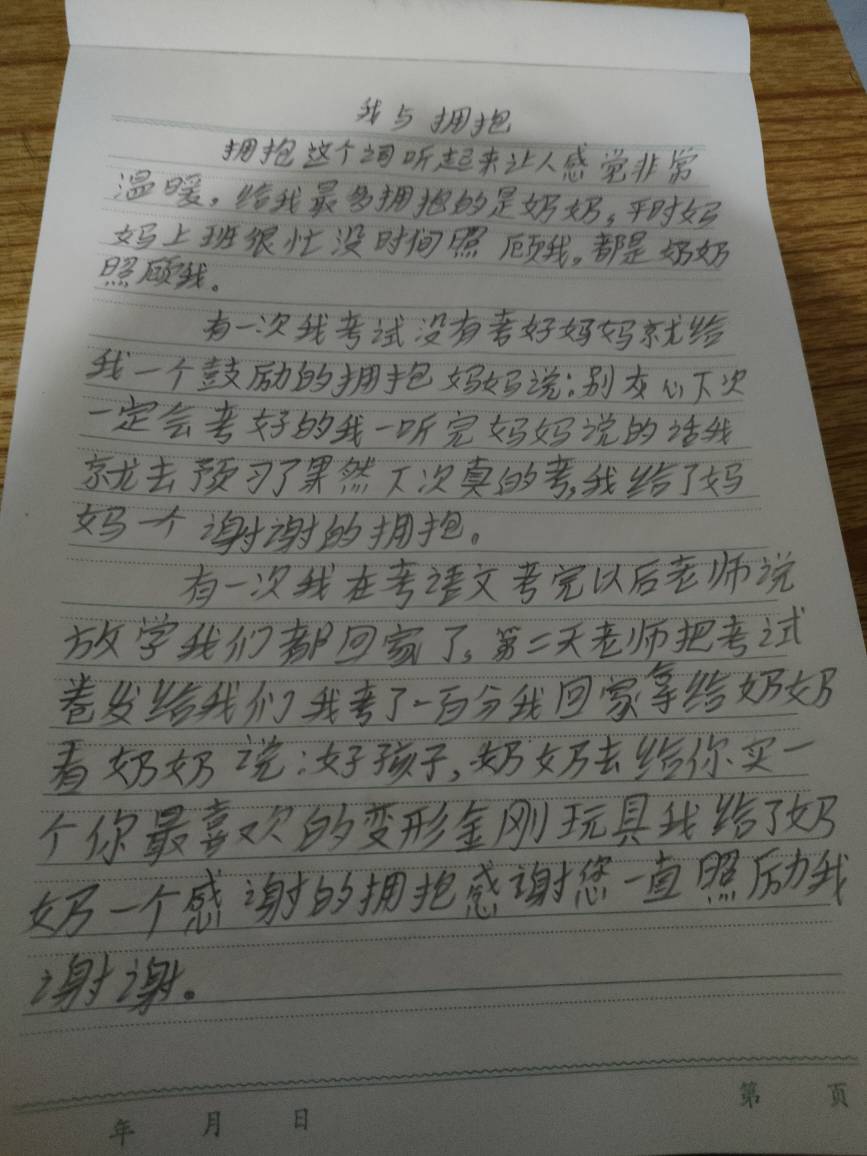 我与拥抱
拥抱这个词听起来让人感觉非常
温暖。给我最多拥抱的是奶奶。平时妈
妈上班很忙没时间照顾我。都是奶奶
照顾我。
有一次我考试没有考好妈妈就给
我一个鼓励的拥抱妈妈说:别灰心下次
一定会考好的我一听完妈妈说的话我
就去预习了果然下次真的考,我给了妈
妈一个谢谢的拥抱。
有一次我在考语文考完以后老师说
放学我们都回家了。第二天老师把考试
卷发给我们我考了一百分我回家拿给奶奶
看奶奶说:好孩子,奶奶去给你买一
个你最喜欢的变形金刚玩具我给了奶
奶一个感谢的拥抱感谢您一直照励我
谢谢。
年 月 日
第 页